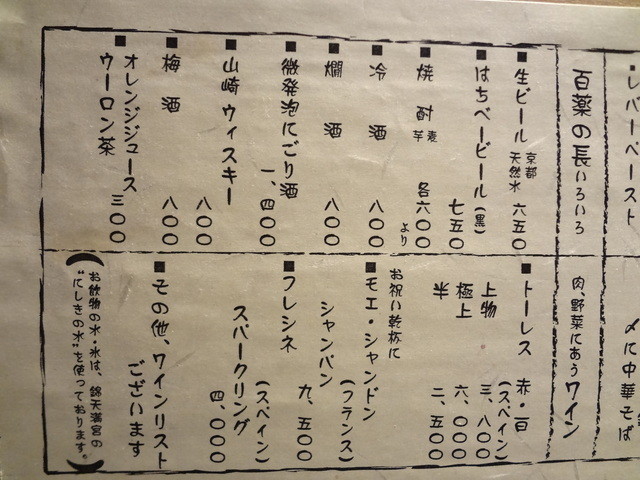 ■レバーペースト
〆に中華そば
百薬の長いろいろ
■生ビール 京都天然水 六五〇
■はちべービール(黒) 七五〇
■焼酎 麦 芋 各六〇〇より
■冷酒 八〇〇
■燗酒 八〇〇
■微発泡にごり酒 一、四〇〇
■山崎ウィスキー 八〇〇
■梅酒 八〇〇
■オレンジジュース
ウーロン茶 三〇〇
肉、野菜にあうワイン
■トーレス 赤・白
(スペイン)
上物 三、八〇〇
極上 六、〇〇〇
半 二、五〇〇
お祝い乾杯に
■モエ・シャンドン
(フランス)
シャンパン 九、五〇〇
■フレシネ
(スペイン)
スパークリング 四、〇〇〇
■その他、ワインリスト
ございます
(お飲物の水・氷は、錦天満宮の
"にしきの水"を使っております。)